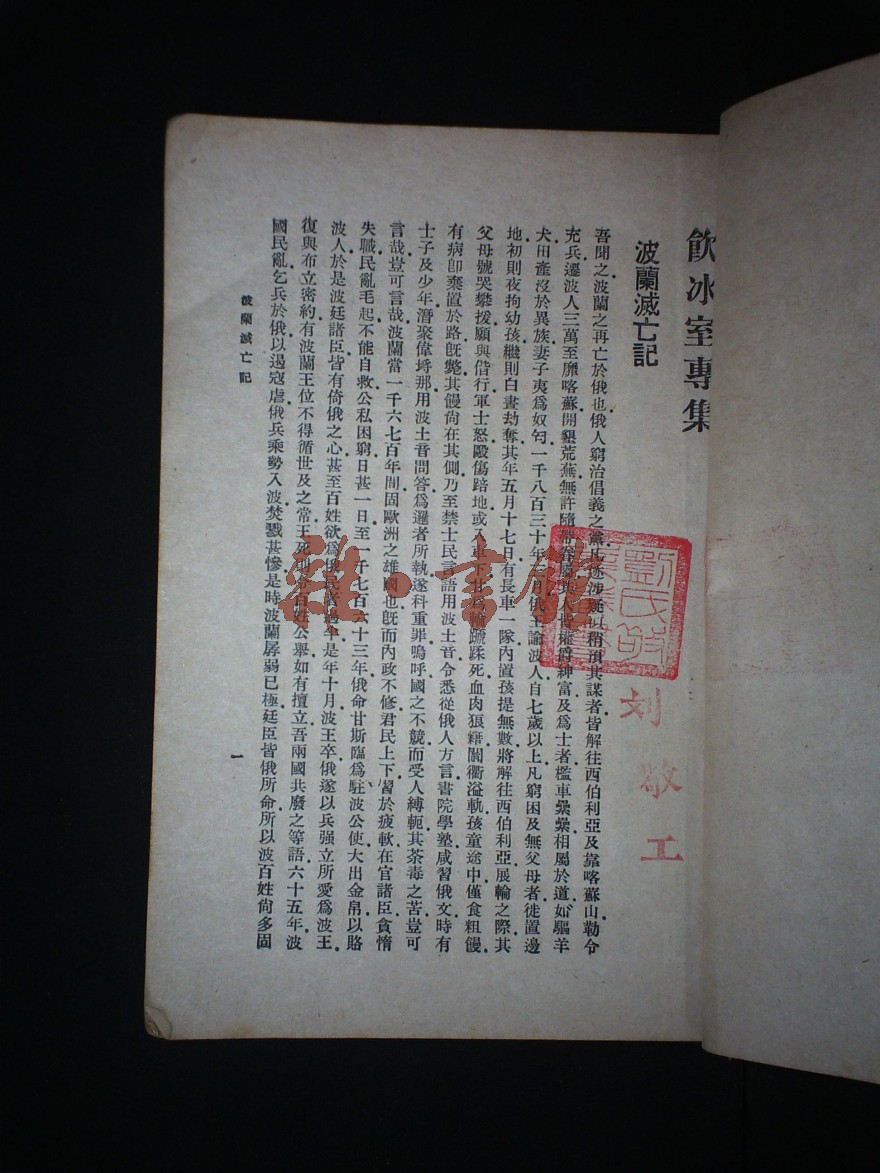 飲冰室專集
波蘭滅亡記
吾聞之波蘭之再亡於俄也俄人窮治倡義之黨凡迹涉疑似稍預其謀者皆解往西伯利亞及靠喀蘇山勒令
充兵遷波人三萬至靡喀蘇開墾荒蕪無許隨帶眷屬其人皆權爵紳富及為士者檻車纍纍相屬於道如驅羊
犬田產沒於異族妻子夷為奴匄一千八百三十年三月俄王諭波人自七歲以上凡窮困及無父母者徙置邊
地初則夜拘幼孩繼則白晝劫奪其年五月十七日有長車一隊內置孩提無數將解往西伯利亞展輪之際其
父母號哭攀援願與偕行軍士怒毆傷踣地或入車下甘為輪蹏蹂死血肉狼藉闐衢溢軌孩童途中僅食粗饅
有病卽棄置於路旣斃其饅尙在其側乃至禁士民言語用波土音令悉從俄人方言書院學塾咸習俄文時有
士子及少年潛聚偉埓那用波土音問答為邏者所執遂科重罪嗚呼國之不競而受人縛軛其荼毒之苦豈可
言哉豈可言哉波蘭當一千六七百年間固歐洲之雄國也旣而內政不修君民上下習於疲軟在官諸臣貪惰
失職民亂毛起不能自救公私困窮日甚一日至一千七百六十三年俄命甘斯臨為駐波公使大出金帛以賂
波人於是波廷諸臣皆有倚俄之心甚至百姓欲為俄民者過半是年十月波王卒俄遂以兵强立所愛為波王
復與布立密約有波蘭王位不得循世及之常王死則令百姓公舉如有擅立吾兩國共廢之等語六十五年波
國民亂乞兵於俄以遏寇虐俄兵乘勢入波焚戮甚慘是時波蘭孱弱已極廷臣皆俄所命所以波百姓尙多固
波蘭滅亡記
一
刘敬工